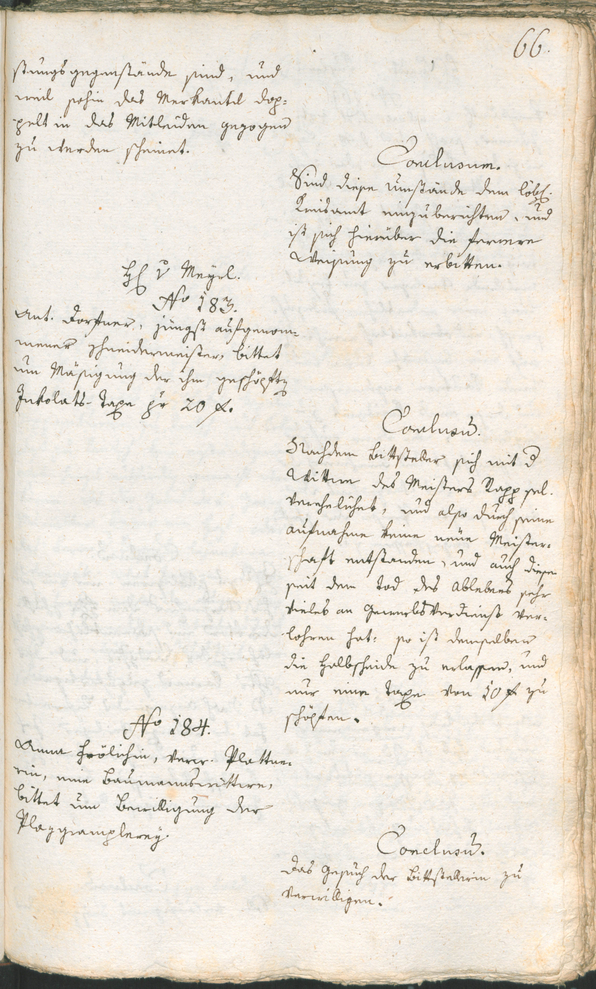 66.
stungsgegenstände sind, und
weil sohin das Merkantil dop=
pelt in das Mitleiden gezogen
zu werden scheinet.
Conclusum.
Sind diese Umstände dem löbl.
Kreisamt einzuberichten, und
ist sich hierüber die fernere
Weisung zu erbitten.
H v Mayrl.
No 183.
Ant. Dorfner, jüngst aufgenom=
mener Schneidermeister, bittet
um Mäßigung der ihm geschöpften
Inkolats-Taxe pr 20 f.
Conclusū.
Nachdem Bittsteller sich mit d
Wittwe des Meisters Rapp sel.
verehelichet, und also durch seine
Aufnahme keine neue Meister=
schaft entstanden, und auch diese
seit dem Tod des Ablebens sehr
vieles an Gewerbsverdienst ver=
lohren hat: so ist demselben
die Halbscheide zu erlassen, und
nur eine Taxe von 10 f zu
schöpfen.
No 184.
Anna Frölichin, verw. Plattne=
rin, eine Baumannswittwe,
bittet um Bewilligung der
Plazgramplerey.
Conclusū.
Das Gesuch der Bittstellerin zu
verwilligen.